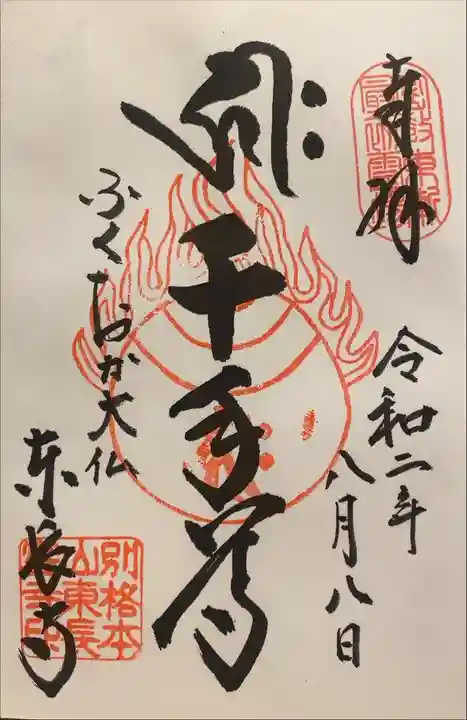 奉拝
令和二年
八月八日
千手尊
ふくおか大仏
東長寺
別格本
山東長